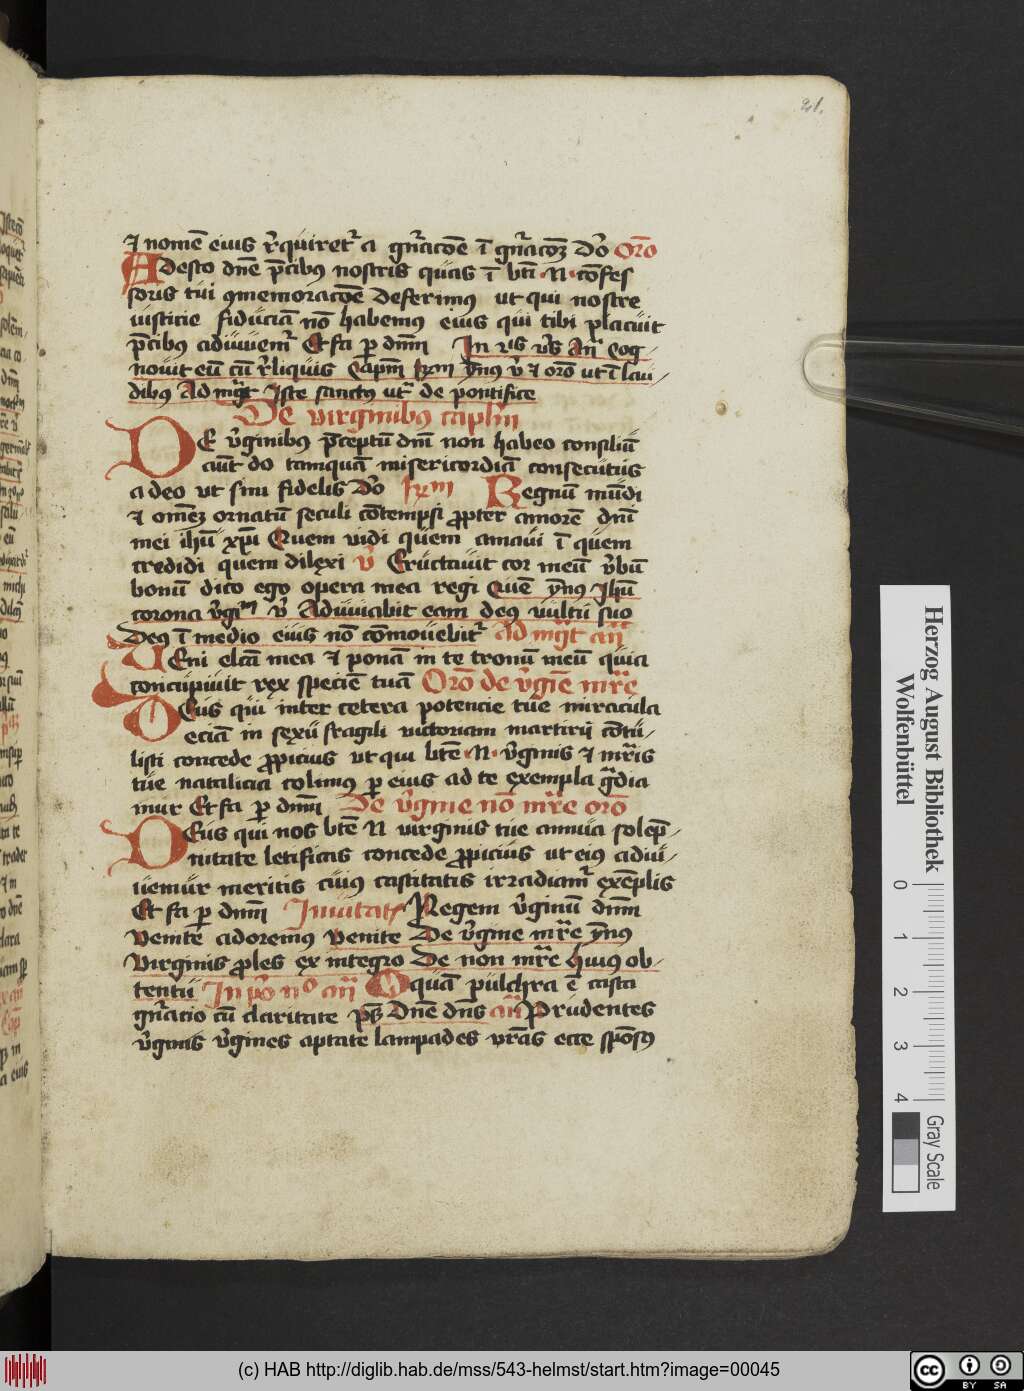 41.
⁊ nomē eius r̄quiret᷑ a gn̄acōe ī gn̄acōꝫ Dō Orō
Adesto dn̄e p̄cibꝯ nostris quas ī bt̄i ·N· cōfes
soris tui ꝯmemoracōe deferimꝯ ut qui nostre
iusticie fiduciā nō habemꝯ eius qui tibi placuit
p̄cibꝯ adiuuem᷑ Et fa ꝑ dnm̄ In An̄ cog
nouit eū cū r̄liquis Cap̄m ym̄nꝯ v̄ ⁊ orō ut ī lau
dibꝯ Ad mḡt Iste sanctus ut᷑ de pontifice
De virginibꝯ capl̄m
DE v̄ginibꝯ p̄ceptū dn̄i non habeo consiliū
aūt do tamquā misericordiā consecutus
a deo ut sim fidelis Dō Regnū mūdi
⁊ om̄eꝫ ornatū seculi cōtempsi ꝓpter amorē dn̄i
mei ih̄u xp̄i Quem uidi quem amaui ī quem
credidi quem dilexi v̄ Eructauit cor meū v̄bū
bonū dico ego opera mea regi Quē ym̄nꝯ Ihū
corona v̄giᵐ v̄ Adiuuabit eam deꝯ uultu suo
Deꝯ ī medio eius nō cōmouebit᷑ Ad mḡt an̄
UEni elc̄a mea ⁊ ponā in te tronū meū quia
concupiuit rex speciē tuā Orō de v̄gīe mr̄e
DEus qui inter cetera potencie tue miracula
eciā in sexu fragili uictoriam martirij cōtu
listi concede ꝓpicius ut qui bt̄e ·N· v̄ginis ⁊ mr̄is
tue natalicia colimꝯ ꝑ eius ad te exempla gͣdia
mur Et fa ꝑ dnm̄ De v̄gine nō mr̄e orō
DEus qui nos bt̄e N virginis tue annua solep̄
nitate letificas concede ꝓpicius ut eiꝯ adiu
uemur meritis cuiꝯ castitatis irradiam᷑ exēplis
Et fa ꝑ dnm̄ Inuitat Regem v̄ginū dnm̄
Venite adoremꝯ Venite De v̄gine mr̄e ym̄nꝯ
Virginis ꝓles ex integro De non mr̄e huiꝯ ob
tentu In pͦ nͦ an̄ O quā pulchra ē casta
gn̄atio cū claritate pš Dn̄e dn̄s an̄ Prudentes
v̄gines v̄gines aptate lampades vr̄as ecce sponsꝯ
Herzog August Bibliothek
Wolfenbüttel
0 1 2 3 4
Gray Scale
(c) HAB http://diglib.hab.de/mss/543-helmst/start.htm?image=00045
cc BY SA